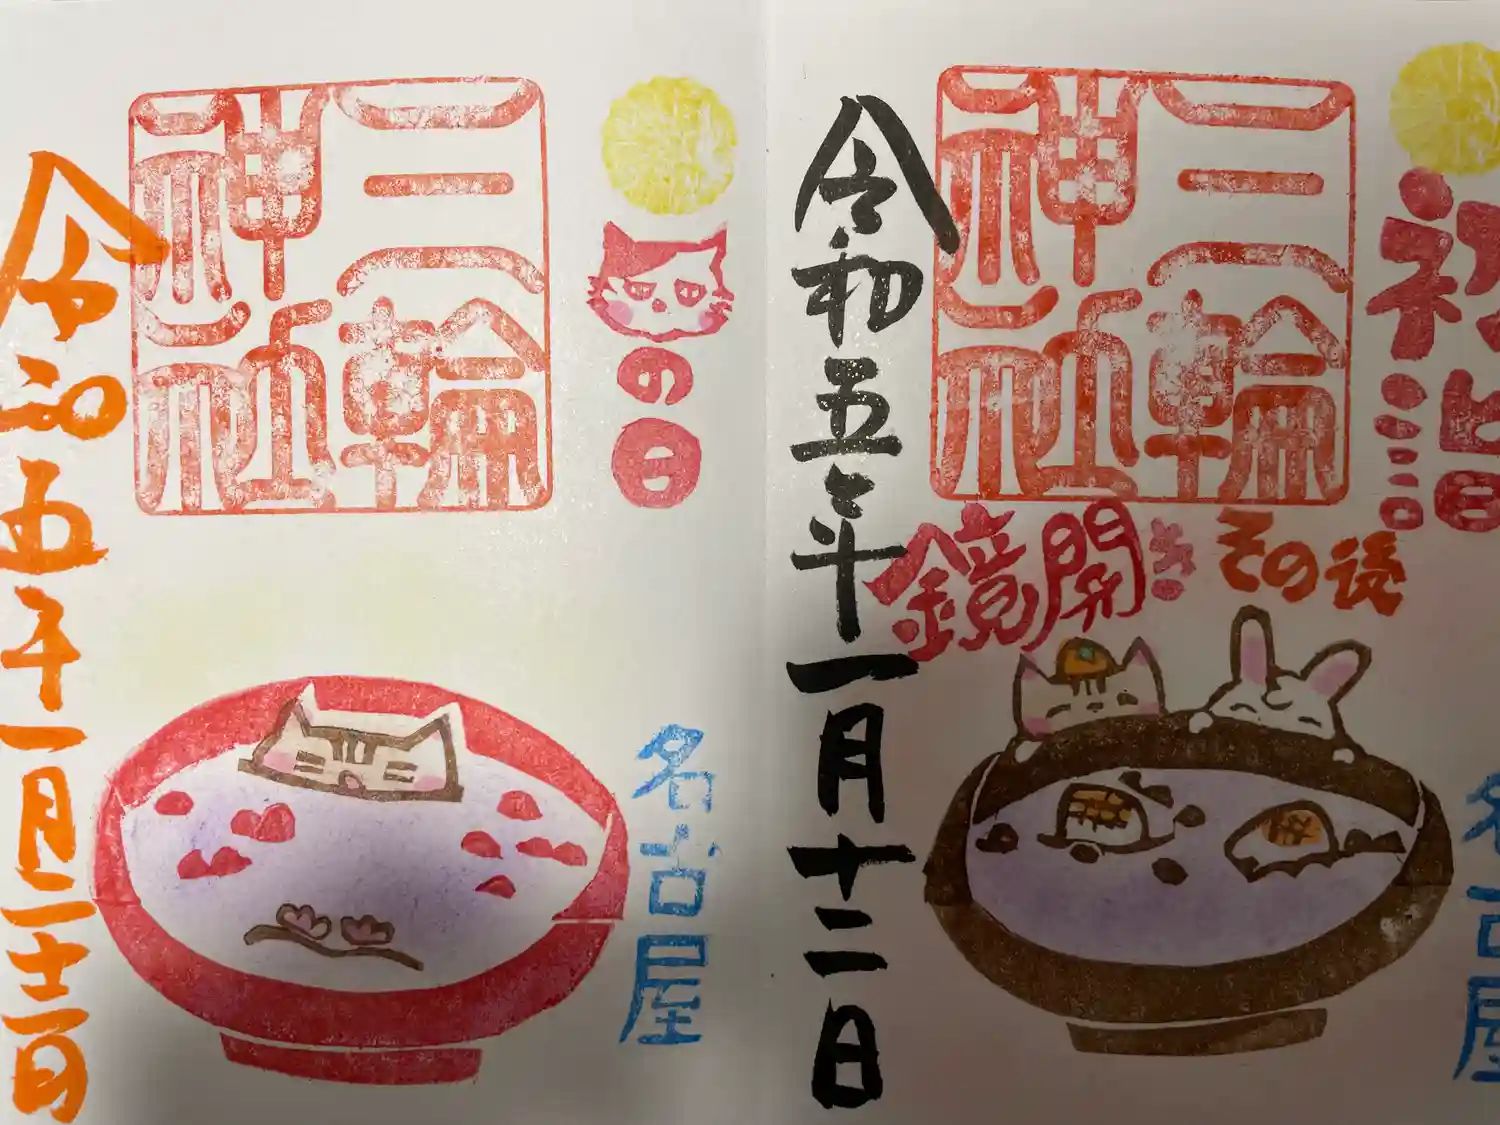 初詣
三輪
神社
その後
鏡開き
名古屋
令和五年一月十二日
の日
三輪
神社
名古屋
令和五年一月二十二日